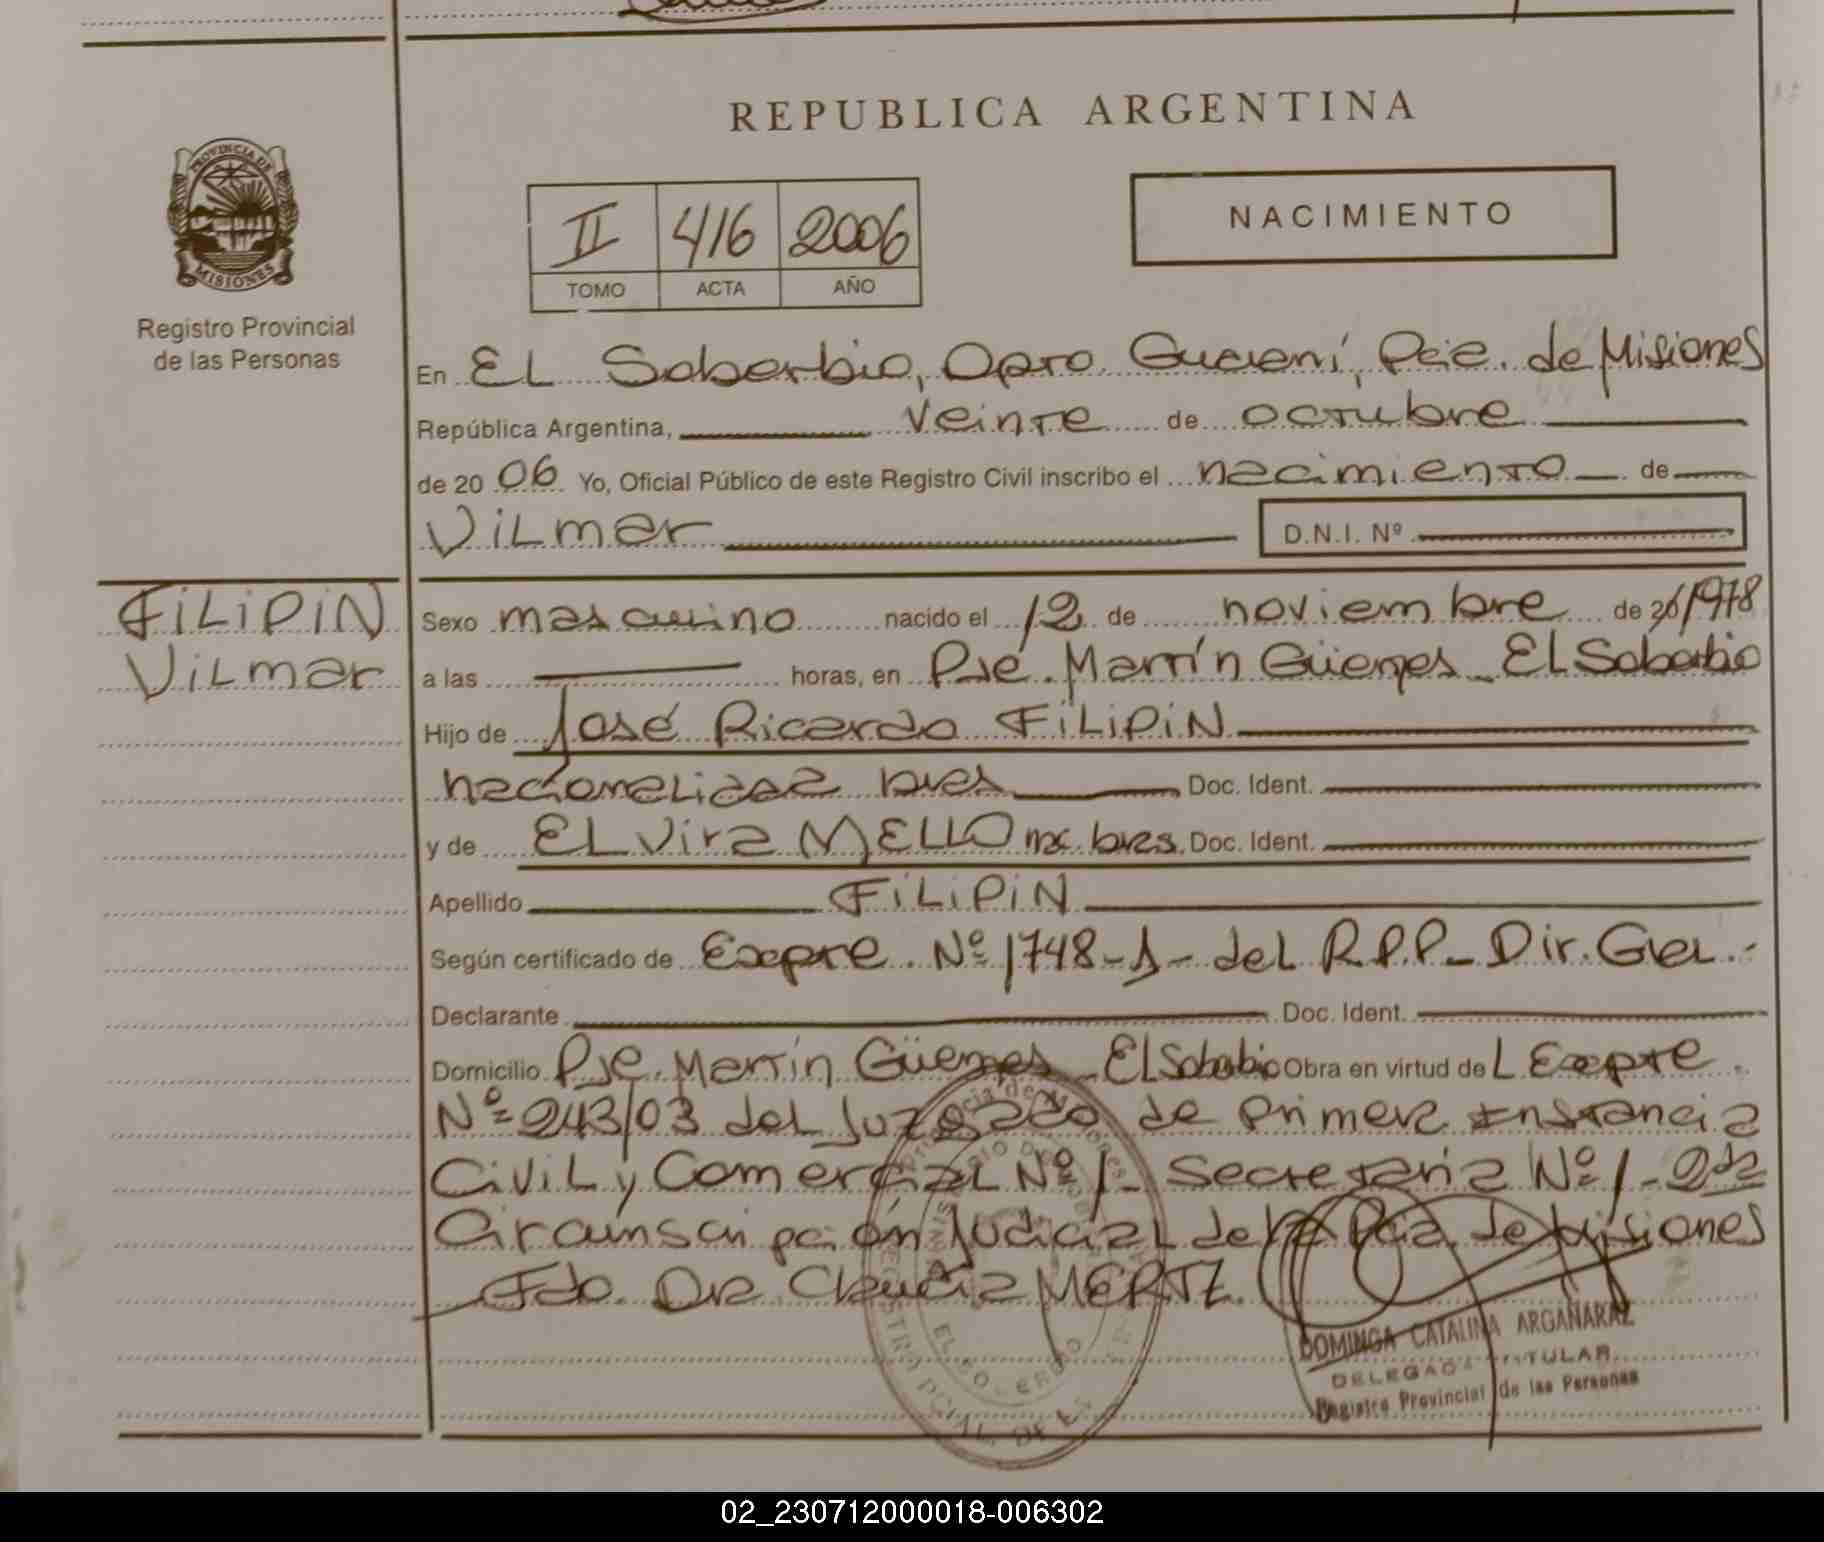 REPUBLICA ARGENTINA
PROVINCIA DE
MISIONES
Registro Provincial
de las Personas
II 416 2006
TOMO ACTA AÑO
NACIMIENTO
En EL Soberbio, Dpto Guaraní, Pcia. de Misiones
República Argentina, veinte de octubre
de 20 06 Yo, Oficial Público de este Registro Civil inscribo el nacimiento de
Vilmar D.N.I. Nº
FILIPIN
Vilmar
Sexo masculino nacido el 12 de noviembre de 20/1978
a las horas, en Pje. Martín Güemes - El Soberbio
Hijo de José Ricardo FILIPIN
nacionalidad bras Doc. Ident.
y de ELvira MELLO nac. bras. Doc. Ident.
Apellido FILIPIN
Según certificado de Expte. Nº 1748-1- del R.P.P - Dir. Gral.-
Declarante Doc. Ident.
Domicilio Pje. Martín Güemes - El Soberbio Obra en virtud de L Expte.
Nº 243/03 del Juzgado de Primera Instancia
Civil y Comercial Nº 1 - Secretaria Nº 1 - 2da
Circunscripción Judicial de la Pcia. de Misiones
Fdo. Dra Claudia MERTZ.
DOMINGA CATALINA ARGAÑARAZ
DELEGADA TITULAR
Registro Provincial de las Personas
02_230712000018-006302